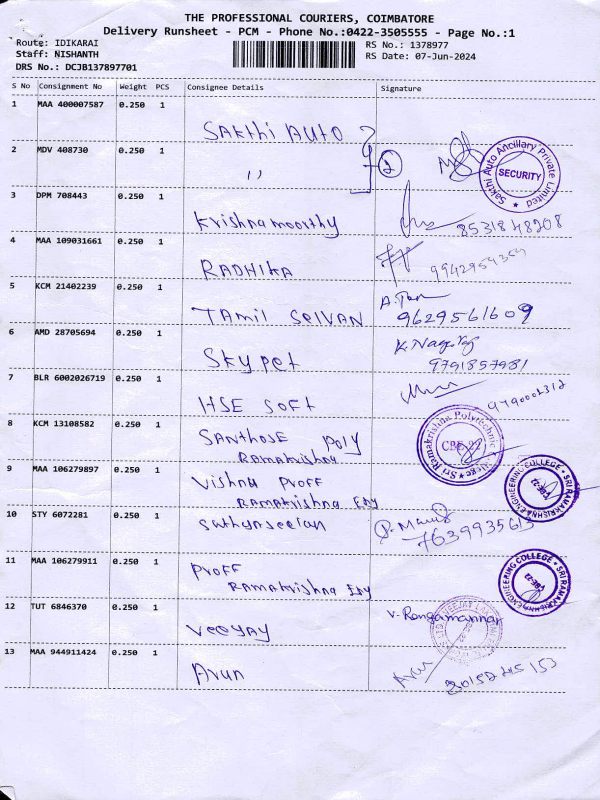 THE PROFESSIONAL COURIERS, COIMBATORE
Delivery Runsheet - PCM - Phone No.:0422-3505555 - Page No.:1
Route: IDIKARAI
RS No.: 1378977
Staff: NISHANTH
RS Date: 07-Jun-2024
DRS No.: DCJB137897701
S No Consignment No Weight PCS Consignee Details Signature
1 MAA 400007587 0.250 1
Sakthi Auto
2 MDV 408730 0.250 1
,,
2
Sakthi Auto Ancillary Private Limited
SECURITY
3 DPM 708443 0.250 1
Krishnamoorthy
8531848208
4 MAA 109031661 0.250 1
RADHIKA
9942954354
5 KCM 21402239 0.250 1
TAMIL SELVAN
9629561609
6 AMD 28705694 0.250 1
Skypet
9791857981
7 BLR 6002026719 0.250 1
HSE SOFT
8 KCM 13108582 0.250 1
SANTHOSE Poly
Ramakrishna
Sri Ramakrishna Polytechnic
9 MAA 106279897 0.250 1
Vishnu Proff
Ramakrishna
SRI RAMAKRISHNA ENGINEERING COLLEGE
10 STY 6072281 0.250 1
Sathyaseelan
11 MAA 106279911 0.250 1
Proff
Ramakrishna
SRI RAMAKRISHNA ENGINEERING COLLEGE
12 TUT 6846370 0.250 1
V. Rangamannar
13 MAA 944911424 0.250 1
Arun
Arun